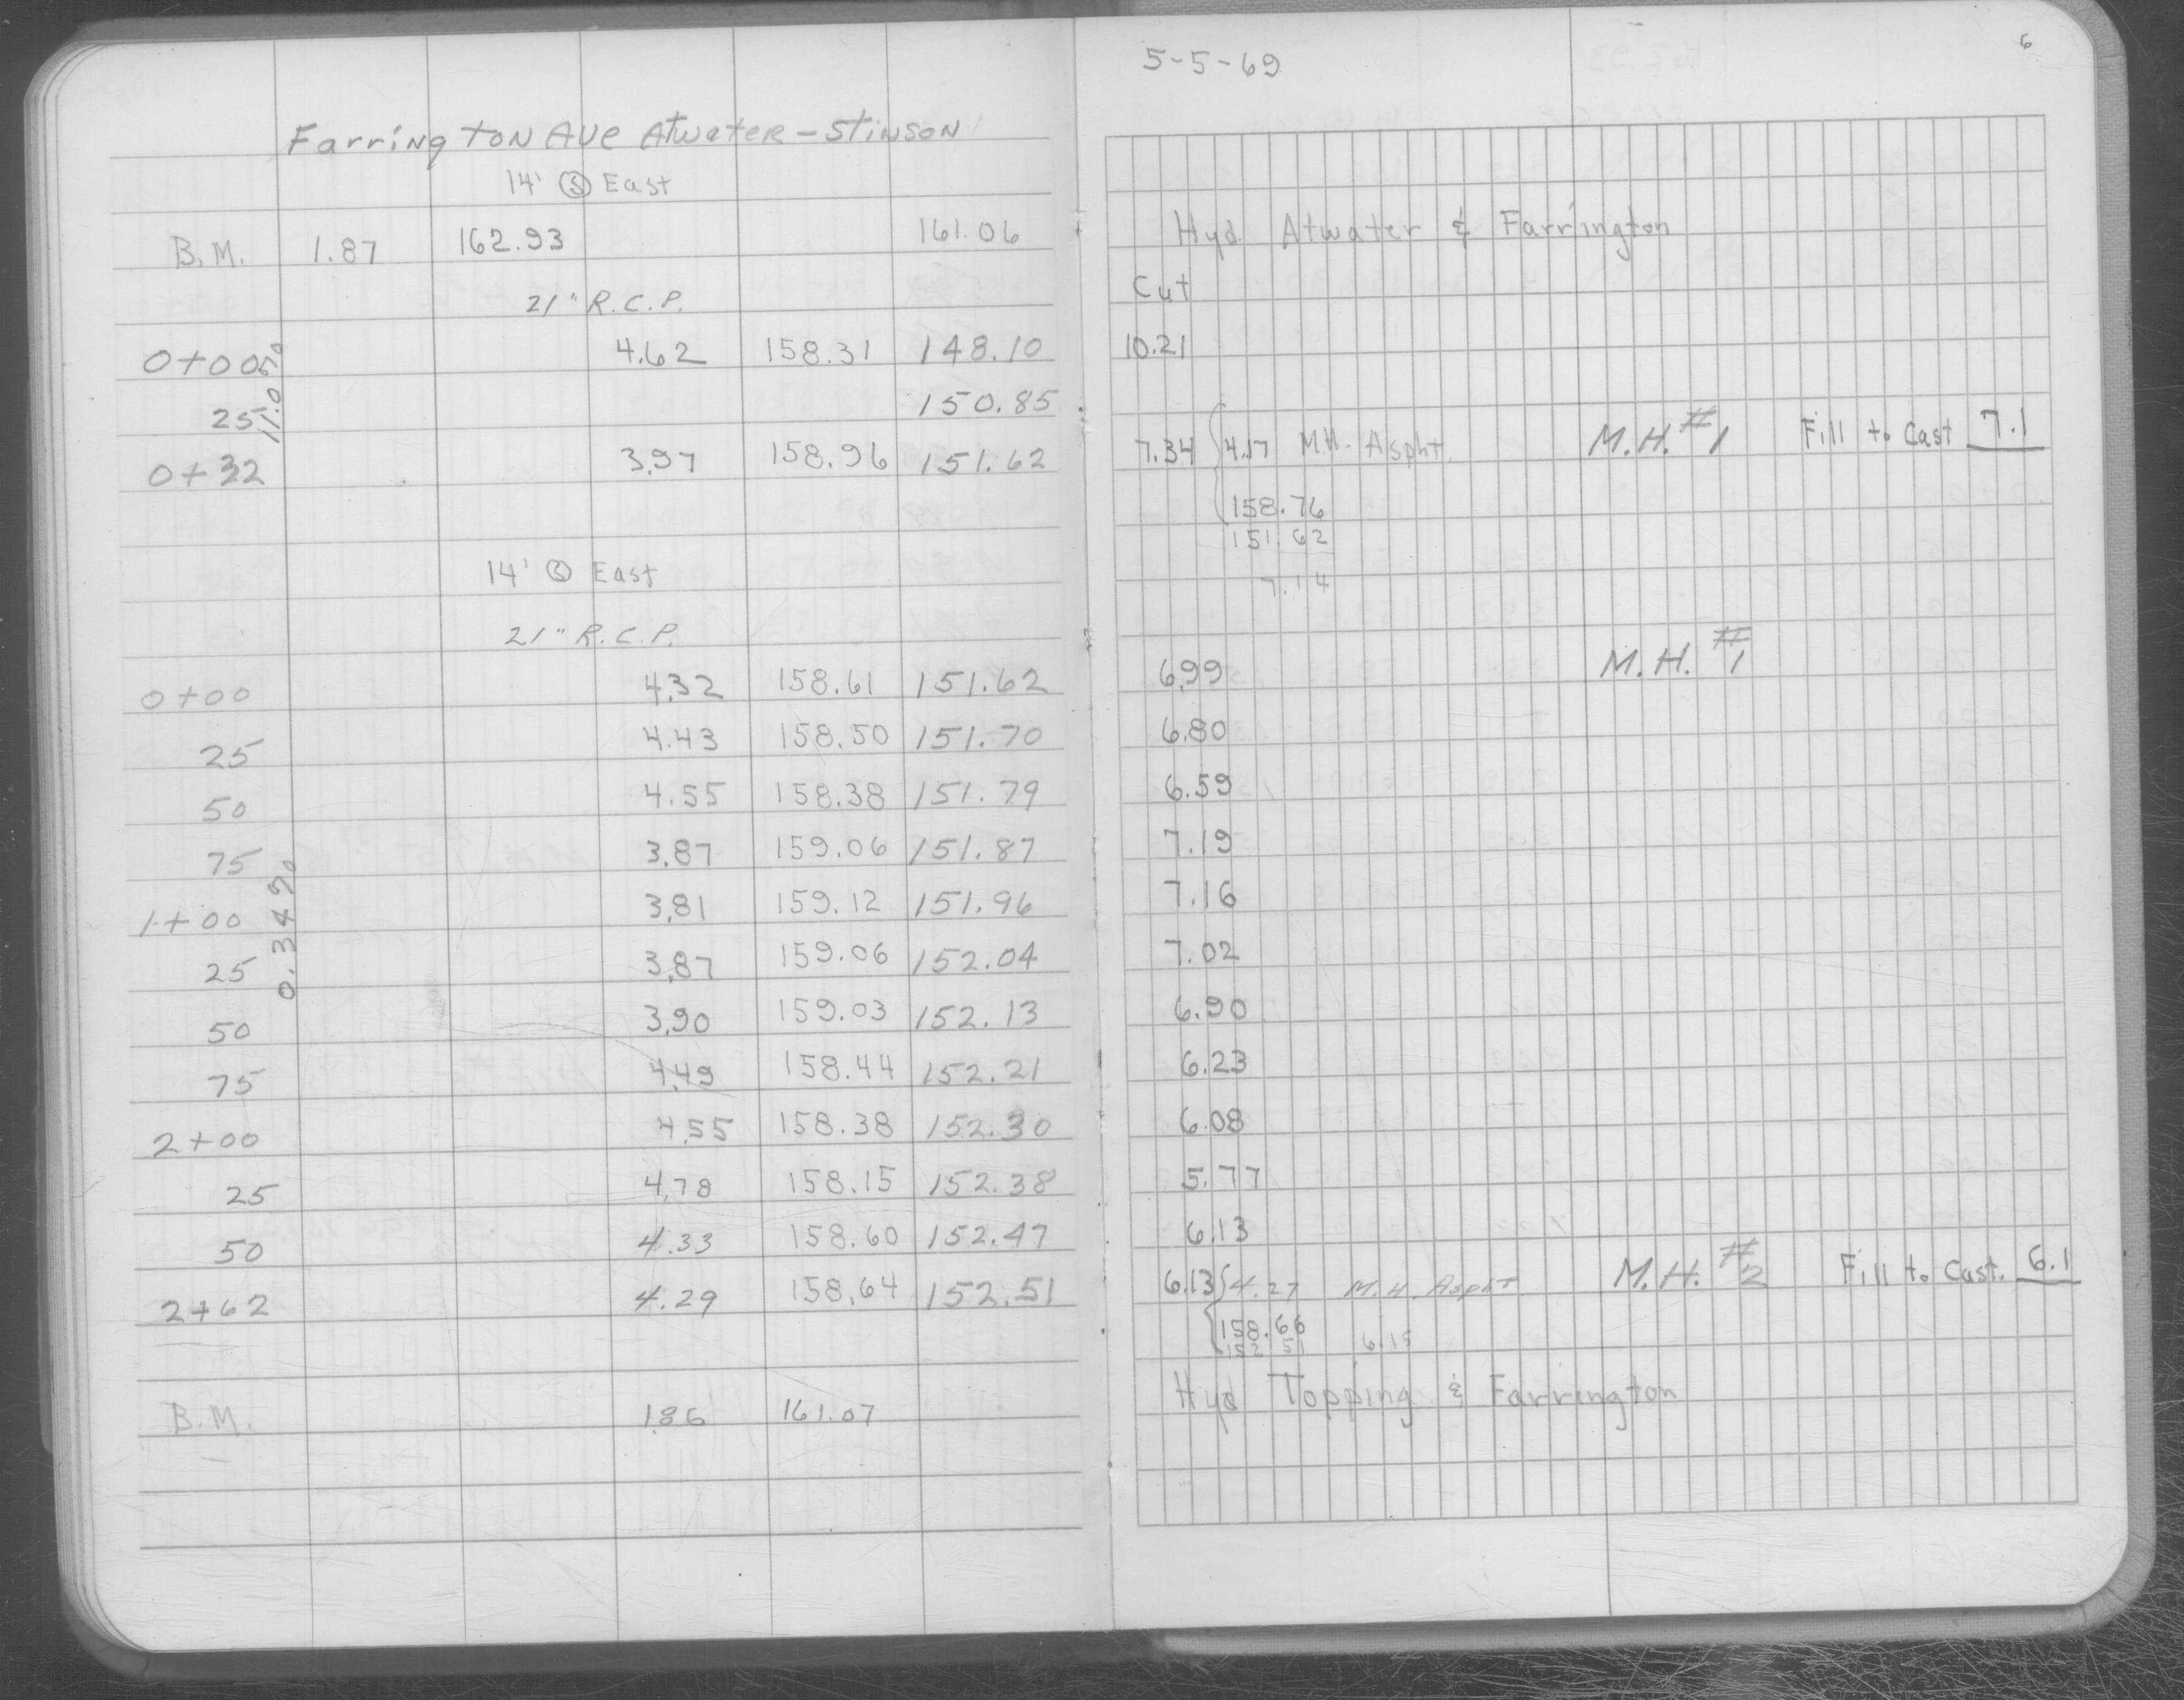 Farrington Ave Atwater - Stinson
14' Ⓢ East
B.M. 1.87 162.93 161.06
21" R.C.P.
0+00 4.62 158.31 148.10
11.0%
25 150.85
0+32 3.97 158.96 151.62
14' Ⓢ East
21" R.C.P.
0+00 4.32 158.61 151.62
25 4.43 158.50 151.70
50 4.55 158.38 151.79
75 3.87 159.06 151.87
0.34%
1+00 3.81 159.12 151.96
25 3.87 159.06 152.04
50 3.90 159.03 152.13
75 4.49 158.44 152.21
2+00 4.55 158.38 152.30
25 4.78 158.15 152.38
50 4.33 158.60 152.47
2+62 4.29 158.64 152.51
B.M. 1.86 161.07
5-5-69 6
Hyd. Atwater & Farrington
Cut
10.21
7.34 4.17 M.H. Aspht. M.H. #1 Fill to Cast 7.1
158.76
151.62
7.14
6.99 M.H. #1
6.80
6.59
7.19
7.16
7.02
6.90
6.23
6.08
5.77
6.13
6.13 4.27 M.H. Aspht M.H. #2 Fill to Cast. 6.1
158.66
152 51 6.15
Hyd Topping & Farrington